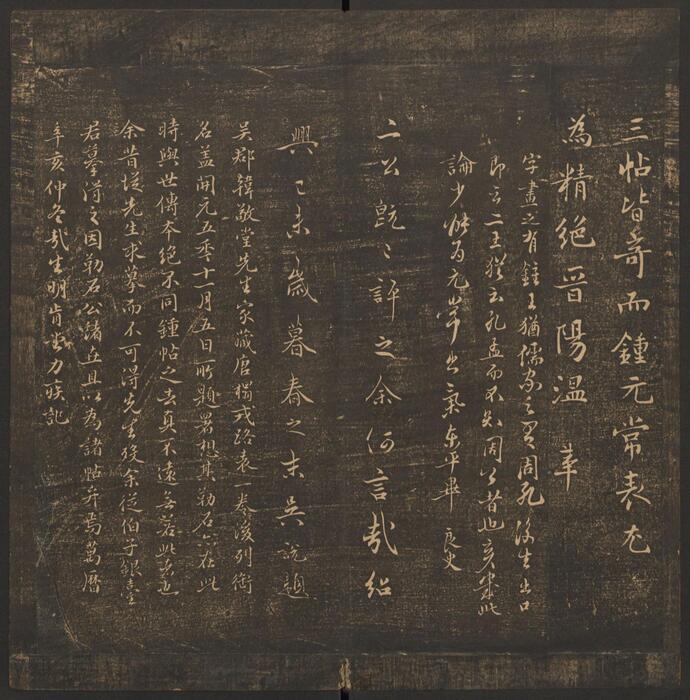 三帖皆奇而鍾元常表尤
為精絕晉陽溫 革
字畫之有鍾王猶儒家之有周孔後生出口
即云二王猶云孔孟而不知周公者也
論少
二公既已評之余何言哉紹
興已未歲暮春之末吳說題
吳郡韓敬堂先生家藏唐楊戎路表一卷後列銜
名蓋開元五年十一月五日所題署想其勒石亦在此
時與世傳本絕不同鍾帖之去真不遠無若此者也
余昔從先生求摹而不可得先生歿余從伯子銀臺
君摹得之因勒石公諸且以為諸帖弁焉萬曆
辛亥仲冬哉生明肯堂力疾記